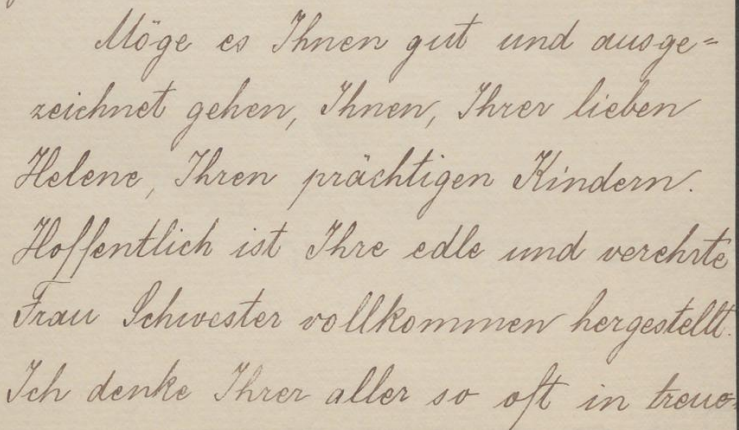 Möge es Ihnen gut und ausge=
zeichnet gehen, Ihnen, Ihrer lieben
Helene, Ihren prächtigen Kindern.
Hoffentlich ist Ihre edle und verehrte
Frau Schwester vollkommen hergestellt.
Ich denke Ihrer aller so oft in treue-